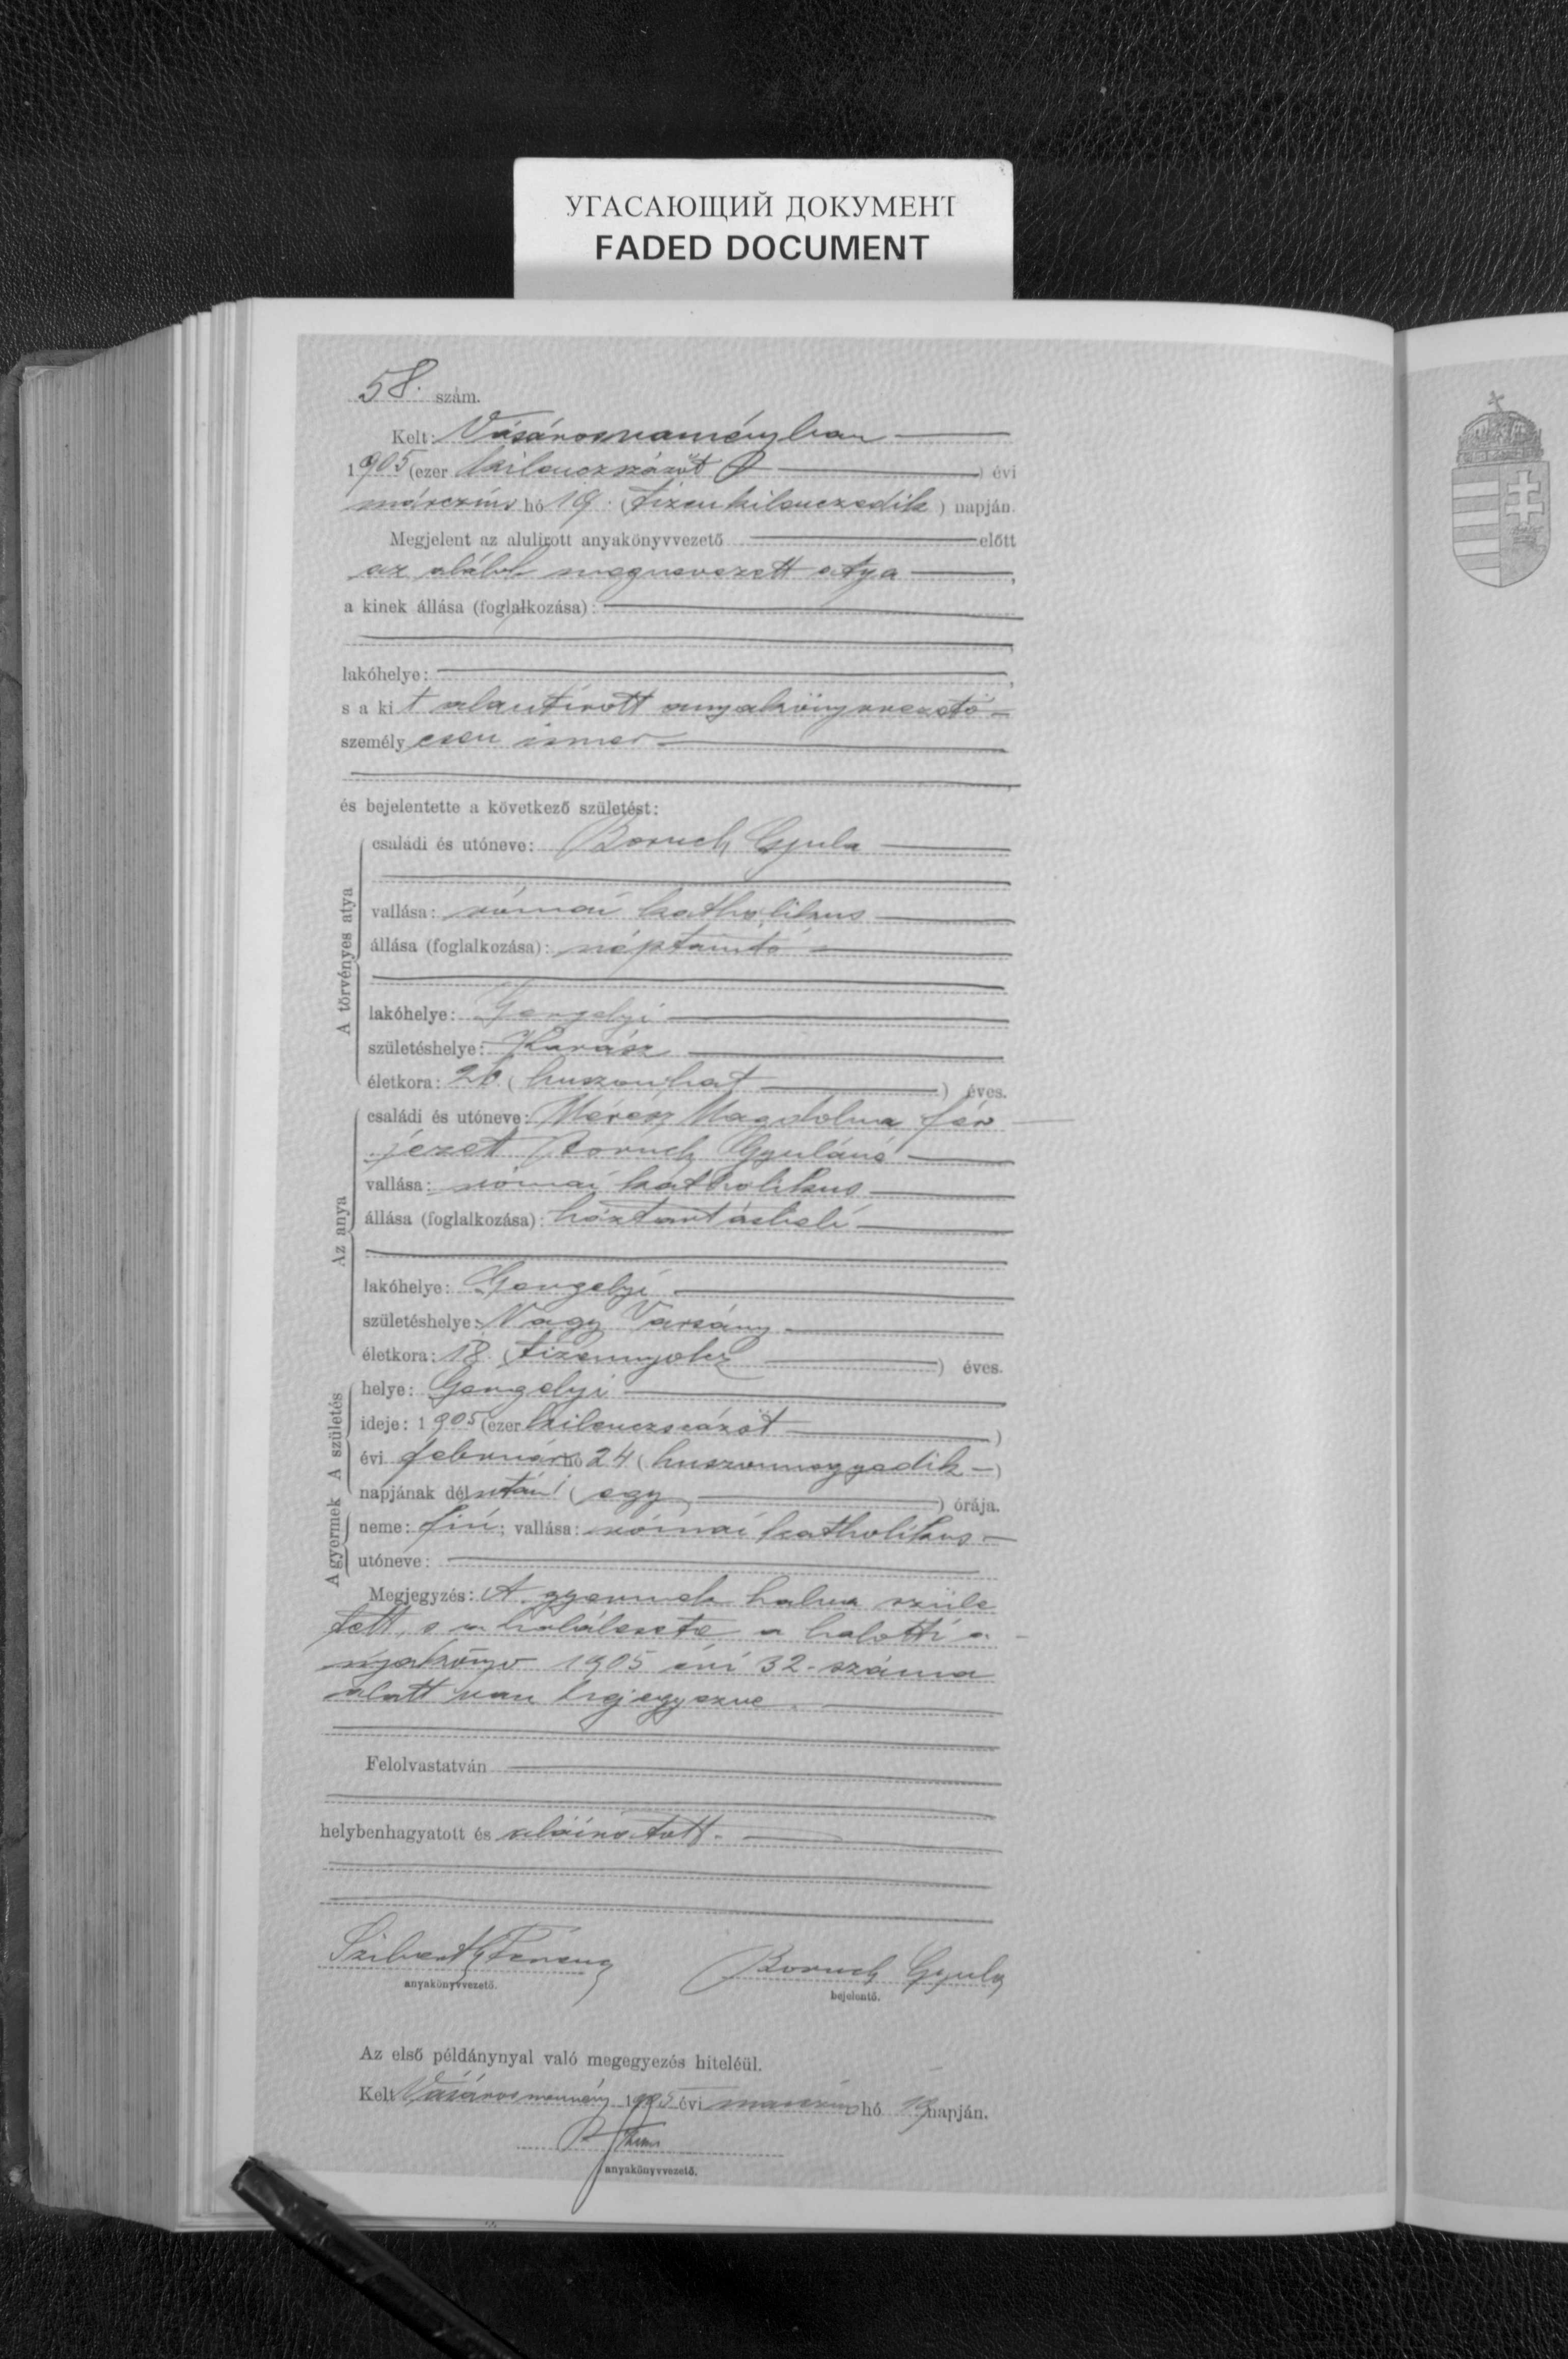 УГАСАЮЩИЙ ДОКУМЕНТ
FADED DOCUMENT
58. szám.
Kelt: Vásárosnaményban
1905 (ezer kilenczszázöt) évi
márczius hó 19. (tizenkilenczedik) napján.
Megjelent az alulírott anyakönyvvezető előtt
az alább megnevezett atya,
a kinek állása (foglalkozása):
lakóhelye:
s a kit alantirott anyakönyvvezető
személyesen ismer
és bejelentette a következő születést:
A törvényes atya
családi és utóneve: Boruch Gyula
vallása: római katholikus
állása (foglalkozása): néptanító
lakóhelye: Gergelyi
születéshelye: Karász
életkora: 26 (huszonhat) éves.
Az anya
családi és utóneve: Magdolna fér
jezet Boruch Gyuláné
vallása: római katholikus
állása (foglalkozása): háztartásbeli
lakóhelye: Gergelyi
születéshelye: Nagy Varsány
életkora: 18. (tizennyolcz) éves.
A születés
helye: Gergelyi
ideje: 1905 (ezer kilenczszázöt)
évi február hó 24 (huszonnegyedik)
napjának délután 1 (egy) órája.
A gyermek
neme: fiú; vallása: római katholikus
utóneve:
Megjegyzés: A gyermek halva szüle
tett, s a halálesete a halotti a
nyakönyv 1905 évi 32. száma
alatt van bejegyezve.
Felolvastatván
helybenhagyatott és aláiratott.
Ferencz Boruch Gyula
anyakönyvvezető. bejelentő.
Az első példánynyal való megegyezés hiteléül.
Kelt Vásárosnamény 1905 évi márczius hó 19 napján.
anyakönyvvezető.